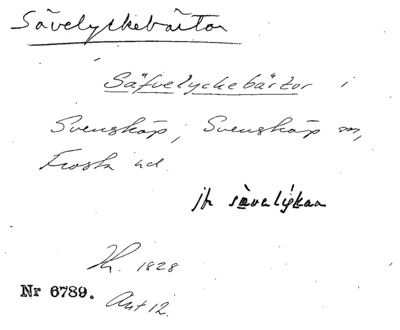 Sävelyckebärtor
Säfvelyckebärtor i
Svensköp, Svensköp sn,
Frosta hd.
jfr sävalyckan
Lh. 1828
Nr 6789. Akt 12.